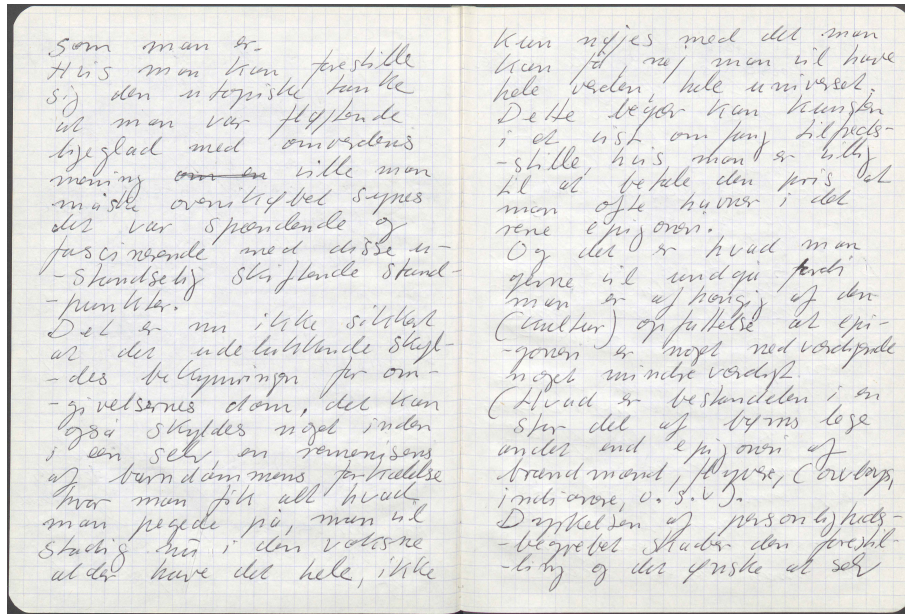 som man er.
Hvis man kan forestille
sig den utopiske tanke
at man var fløjtende
ligeglad med omverdens
mening om en ville man
måske ovenikøbet synes
det var spændende og
fascinerende med disse u-
-standselig skiftende stand-
-punkter.
Det er nu ikke sikkert
at det udelukkende skyl-
-des bekymringen for om-
-givelsernes dom, det kan
også skyldes noget inden
i een selv, en reminisens
af barndommens forkælelse
hvor man fik alt hvad
man pegede på, man vil
stadig nu i den voksne
alder have det hele, ikke
kun nøjes med det man
kan få nej man vil have
hele verden, hele universet.
Dette begær kan kunsten
i et vist omfang tilfreds-
-stille, hvis man er villig
til at betale den pris at
man ofte havner i det
rene epigoneri.
Og det er hvad man
gerne vil undgå fordi
man er afhængig af den
(kultur) opfattelse at epi-
-goneri er noget nedværdigende
noget mindreværdigt.
(Hvad er bestandelen i en
stor del af børns lege
andet end epigoneri af
brandmænd, flyvere, Cowboys,
indianere, o.s.v.).
Dyrkelsen af personligheds-
-begrebet skaber den forestil-
-ling og det ønske at selv